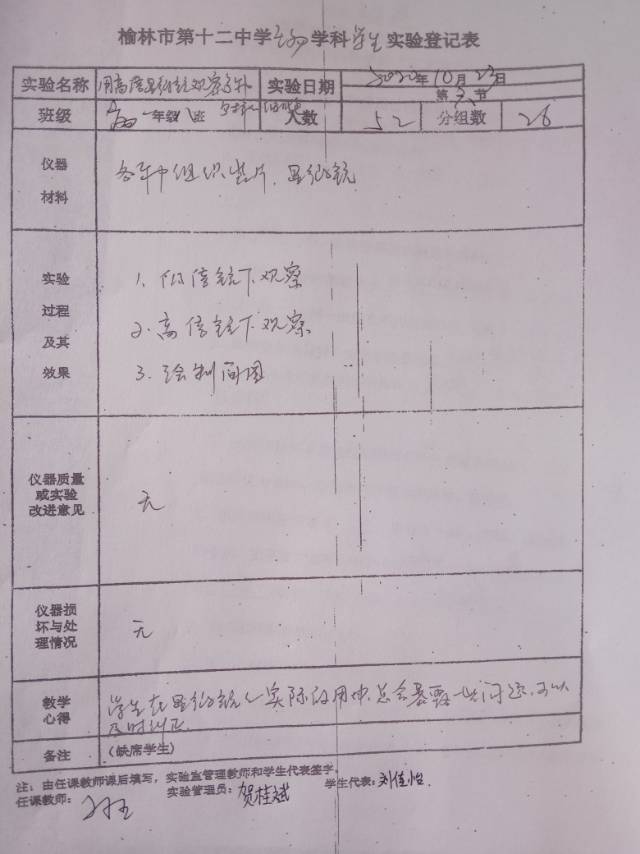 榆林市第十二中学生物学科学生实验登记表
实验名称 用高倍显微镜观察 实验日期 2020年10月23日
第 节
班级 高一年级八班 人数 52 分组数 26
仪器
材料
各种组织装片、显微镜
实验
过程
及其
效果
1. 低倍镜下观察
2. 高倍镜下观察
3. 绘制简图
仪器质量
或实验
改进意见
无
仪器损
坏与处
理情况
无
教学
心得
学生在显微镜 实际使用中,总会暴露一些问题,可以
及时纠正.
备注
(缺席学生)
注:由任课教师课后填写,实验室管理教师和学生代表签字。
任课教师: 实验管理员:贺桂斌 学生代表:刘佳怡